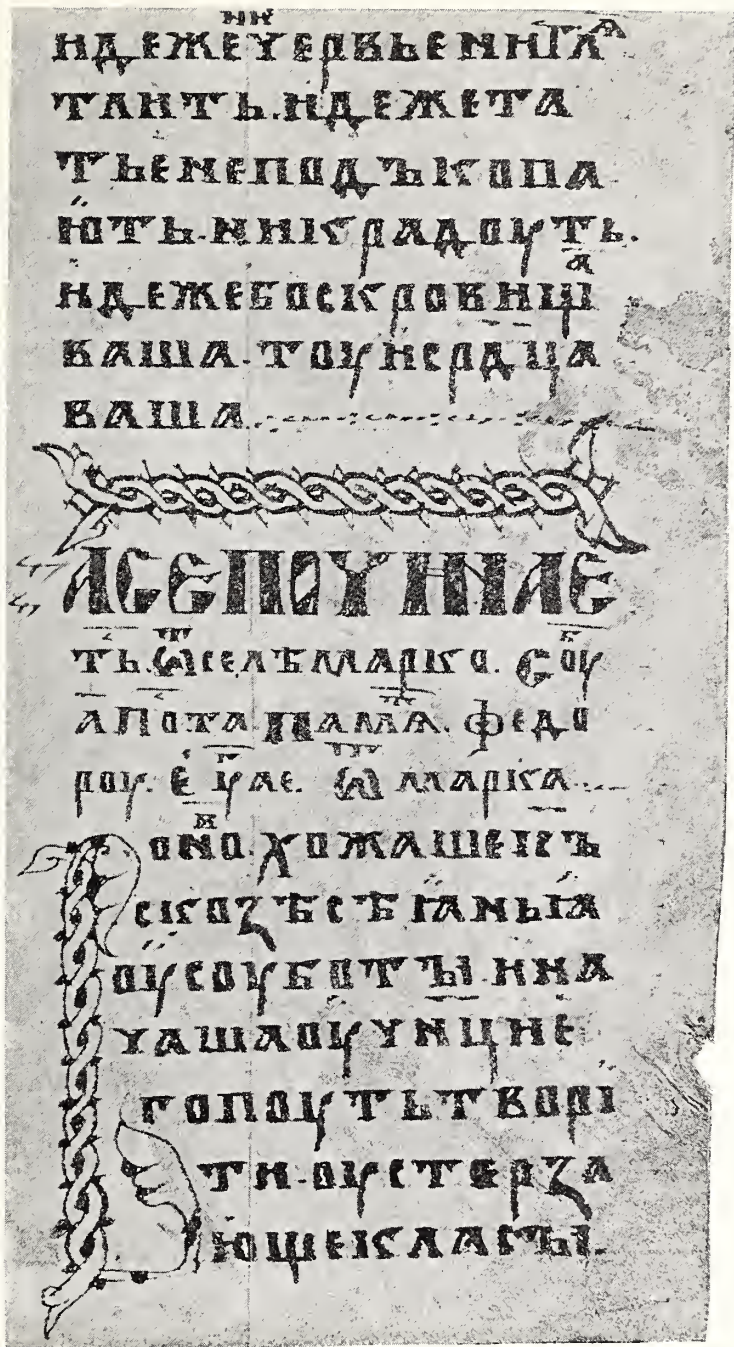 идеженичервьенитлѧ
тлить.идежета
тьенеподъкопа
ють.никрадоуть.
идежебоскровища
ваша.тоуисрдца
ваша
АСЕПОЧИНАЕ
ть.ѿселѣмарко. соуб
апота памѧ. федо
роу. ѿ марка
оно. хожашеіс҃ъ
скозѣсѣꙗньꙗ
оусоуботъı.ина
чашаоучн҃цие
гопоутьтворі
ти.оустерза
ющекласъı.